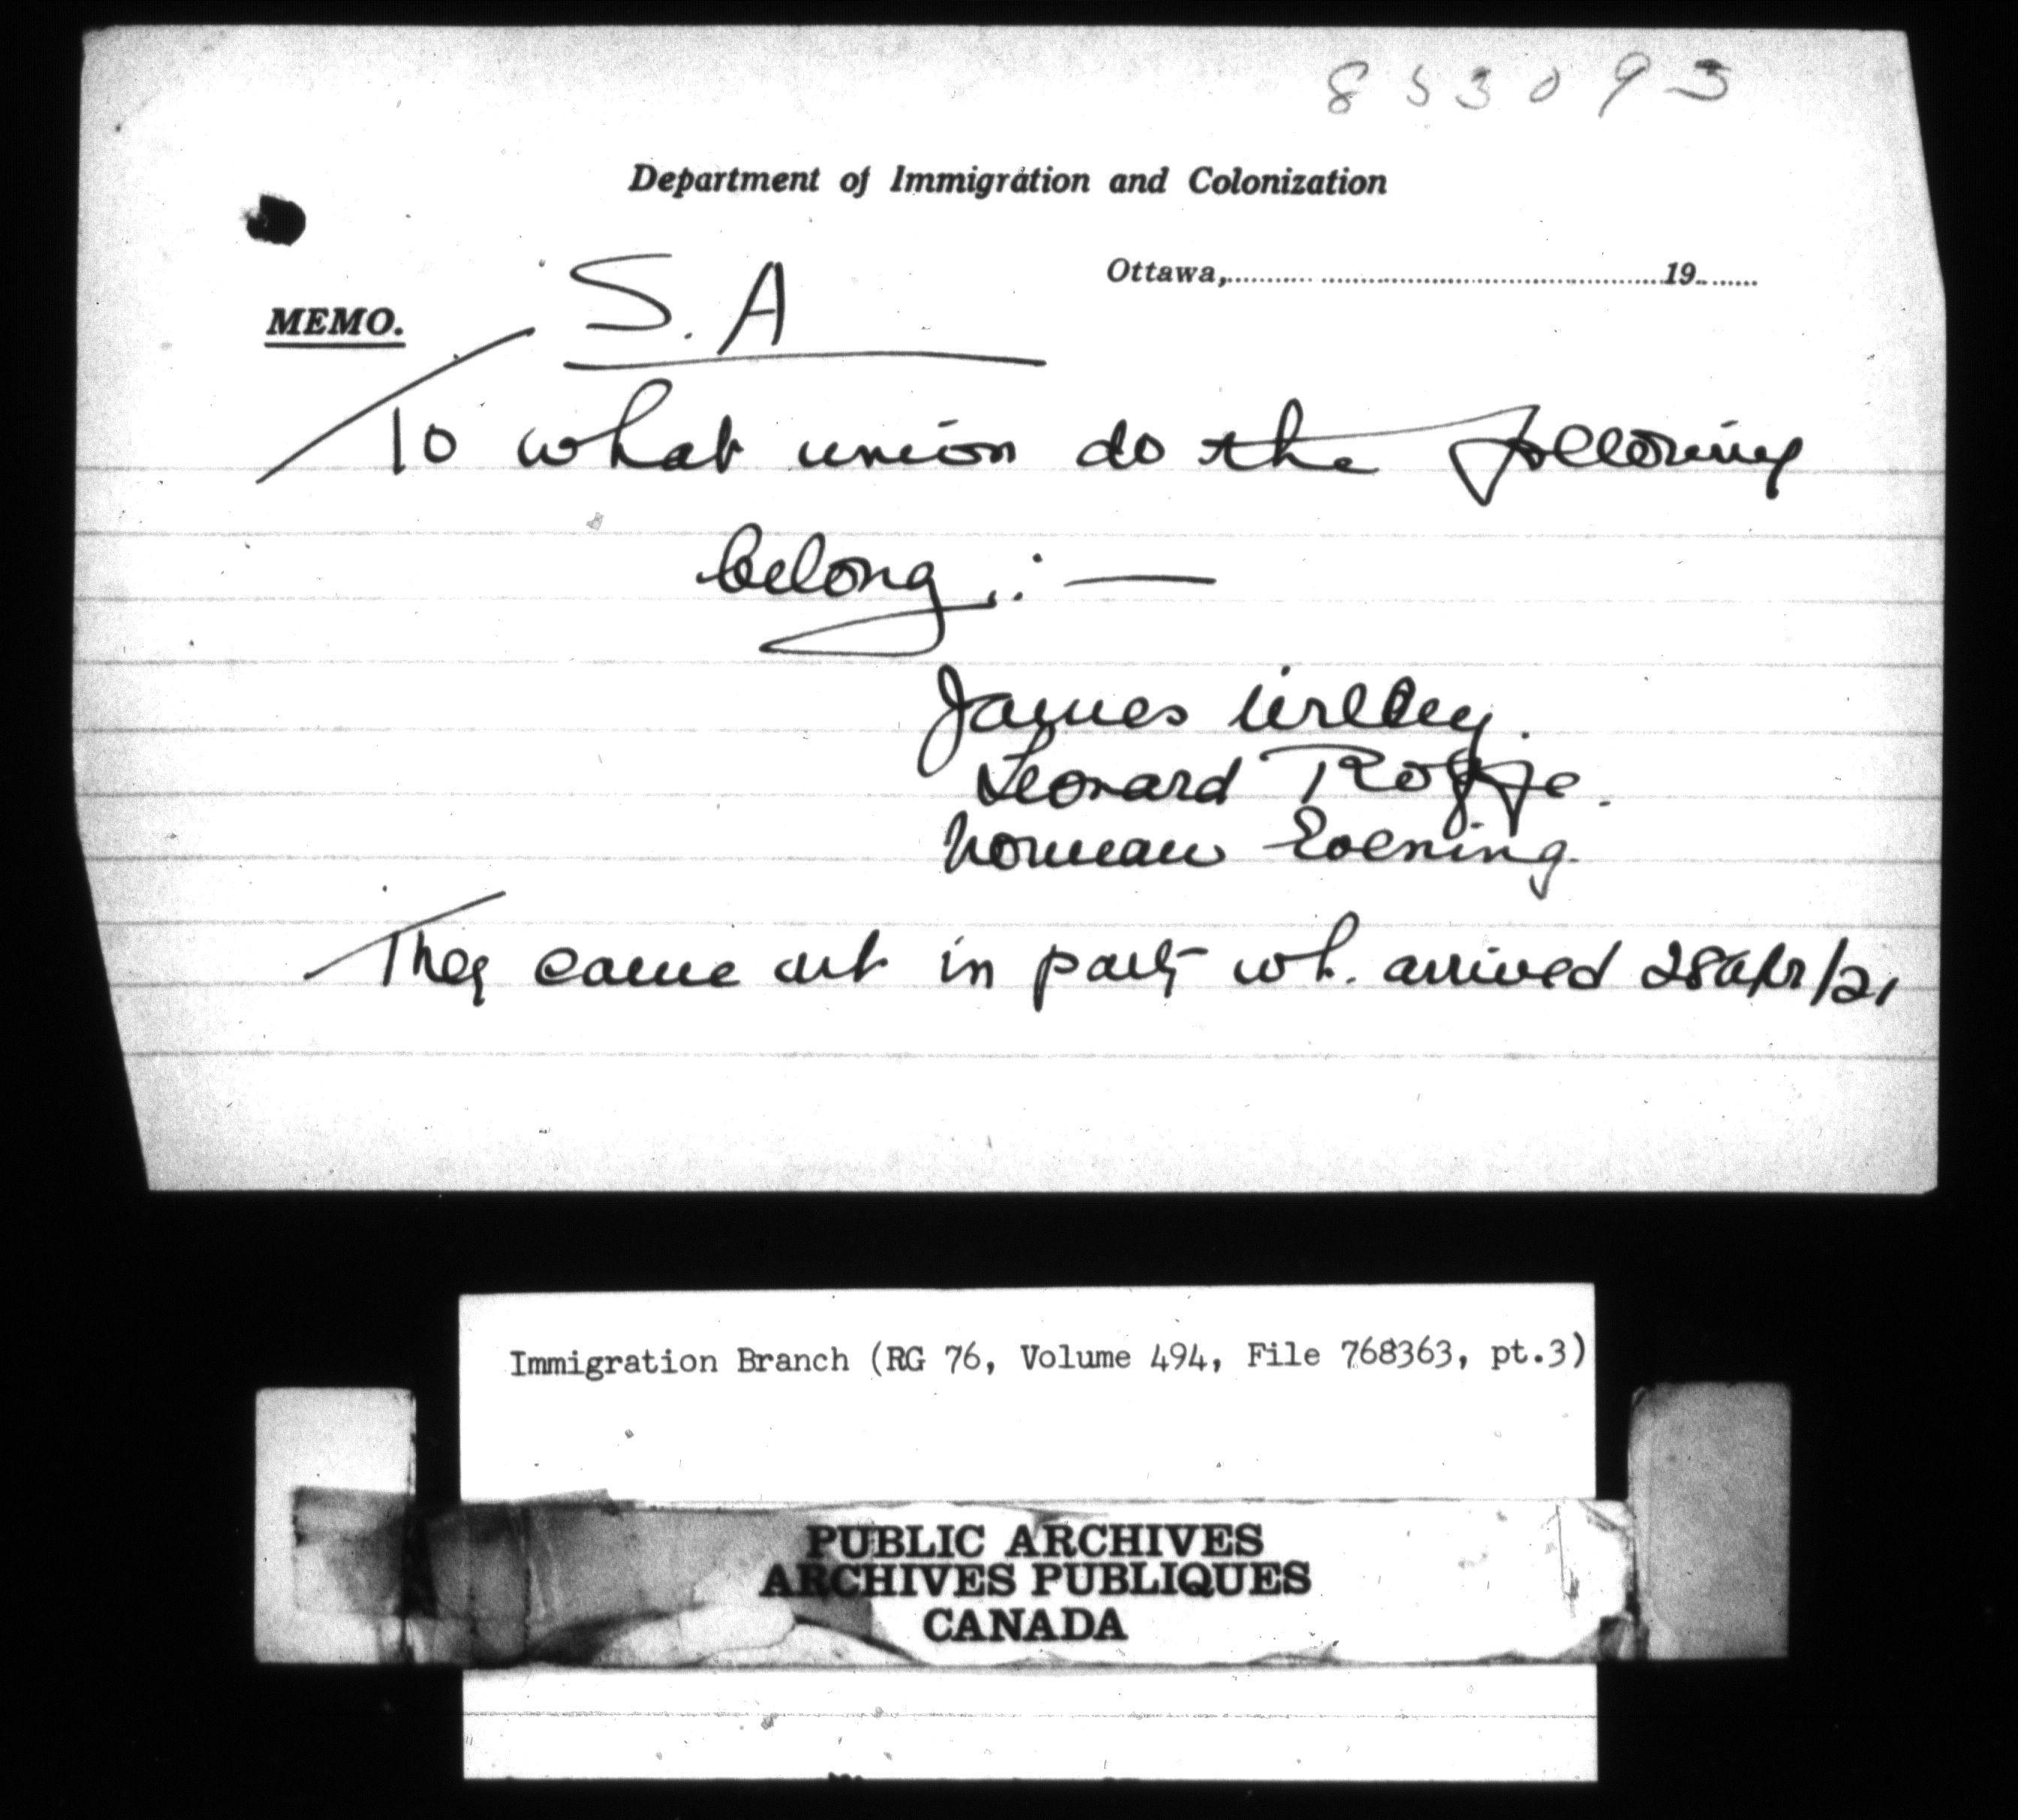 853093
Department of Immigration and Colonization
Ottawa, 19
MEMO.
S. A
To what union do the following
belong :—
James
Leonard
Norman Evening.
They came out in party wh. arrived 28 Apr/21
Immigration Branch (RG 76, Volume 494, File 768363, pt.3)
PUBLIC ARCHIVES
ARCHIVES PUBLIQUES
CANADA